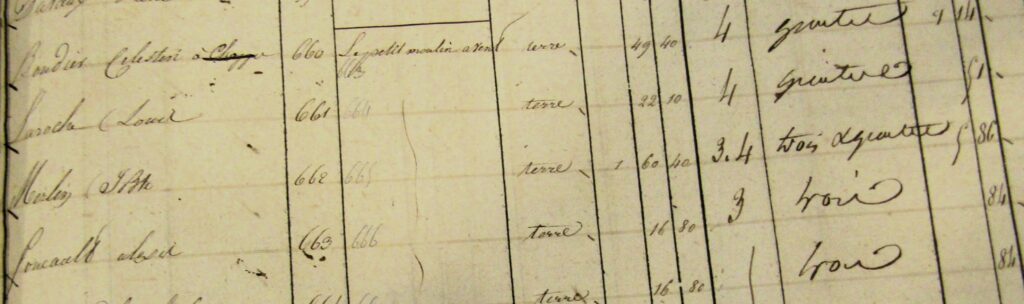 Boudier Celestin à 660 Le petit moulin a vent terre 49 40 4 quatre 1 14
663
Laroche Louis 661 664 terre 22 10 4 quatre 51
Merlin J Bte 662 665 terre 1 60 40 3.4 trois & quatre 5 86
Foucault 663 666 terre 16 80 3 trois 84
terre 16 80 trois 84